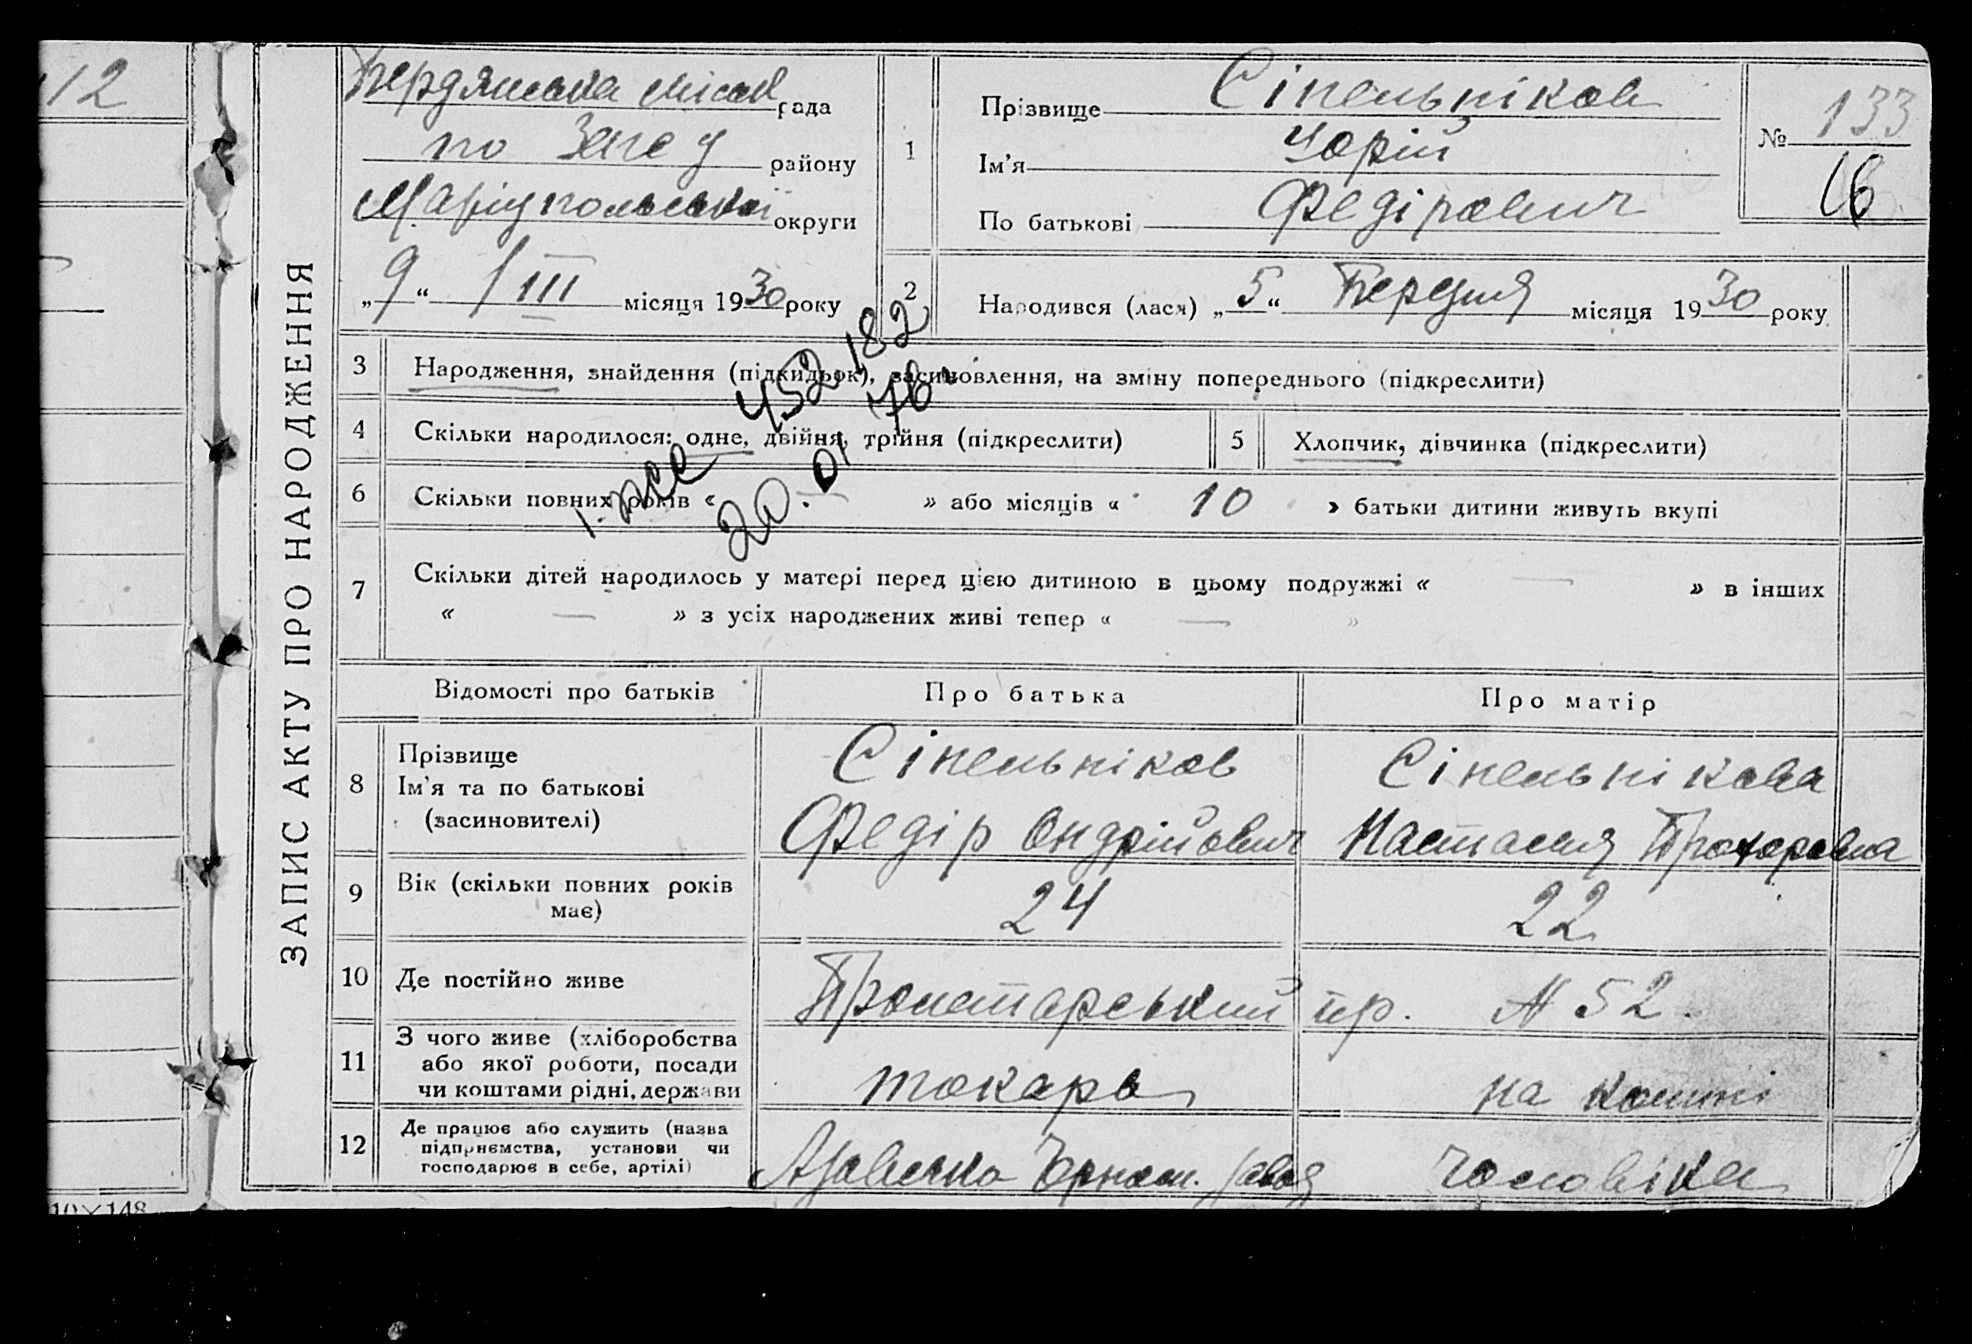 112
ЗАПИС АКТУ ПРО НАРОДЖЕННЯ
Бердянська міськ рада
по Загс у району
Маріупольської округи
„9“ / III місяця 1930 року
1
Прізвище Сінельніков
Ім’я Юрій
По батькові Федірович
№ 133
16
2 Народився (лася) „5“ Березня місяця 1930 року
3 Народження, знайдення (підкидьок), засиновлення, на зміну попереднього (підкреслити)
4 Скільки народилося: одне, двійня, трійня (підкреслити) 5 Хлопчик, дівчинка (підкреслити)
6 Скільки повних років « — » або місяців « 10 » батьки дитини живуть вкупі
452182
20. 01 76
7 Скільки дітей народилось у матері перед цією дитиною в цьому подружжі « — » в інших
« — » з усіх народжених живі тепер « — »
Відомості про батьків Про батька Про матір
8 Прізвище Сінельніков Сінельнікова
Ім’я та по батькові
(засиновителі) Федір Ондрійович Настасия Прохоровна
9 Вік (скільки повних років
має) 24 22
10 Де постійно живе Пролетарський пр. № 52.
11 З чого живе (хліборобства
або якої роботи, посади
чи коштами рідні, держави токарь на кошті
12 Де працює або служить (назва
підприємства, установи чи
господарює в себе, артілі) Азовсько Чорном. завод чоловіка
10×148